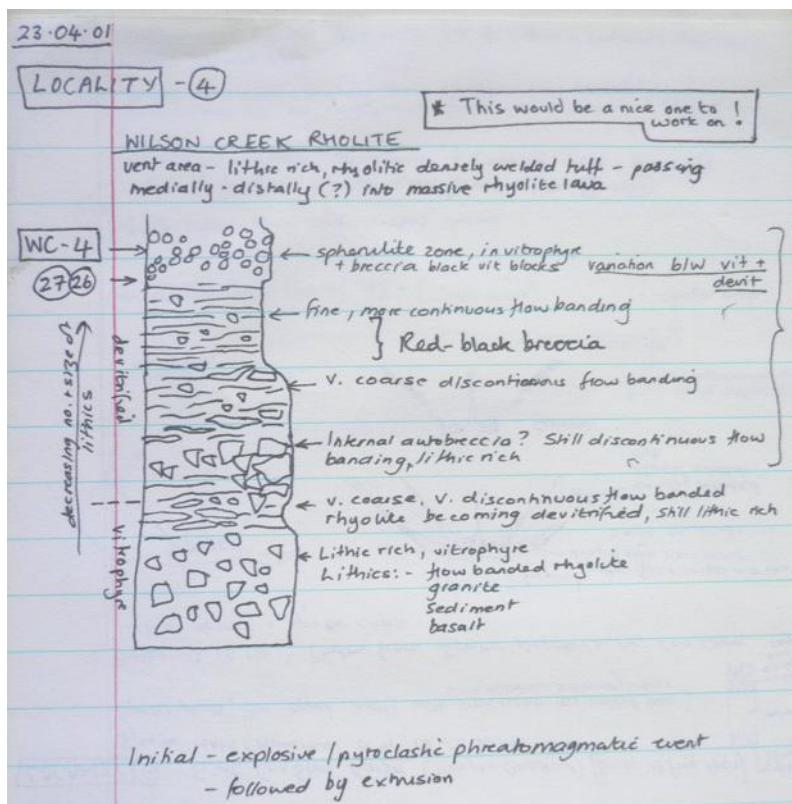 23.04.01
LOCALITY - 4
* This would be a nice one to work on!
WILSON CREEK RHOLITE
vent area - lithic rich, rhyolitic densely welded tuff - passing
medially - distally (?) into massive rhyolite lava
WC-4
27 26
spherulite zone, in vitrophyre
+ breccia black vit blocks
variation b/w vit +
devit
fine, more continuous flow banding
Red-black breccia
v. coarse discontinous flow banding
Internal autobreccia? Still discontinuous flow
banding, lithic rich
v. coarse, v. discontinuous flow banded
rhyolite becoming devitrified, still lithic rich
Lithic rich, vitrophyre
Lithics:- flow banded rhyolite
granite
sediment
basalt
decreasing no. + size of
lithics
devitrified
vitrophyre
Initial - explosive / pyroclastic phreatomagmatic event
- followed by extrusion